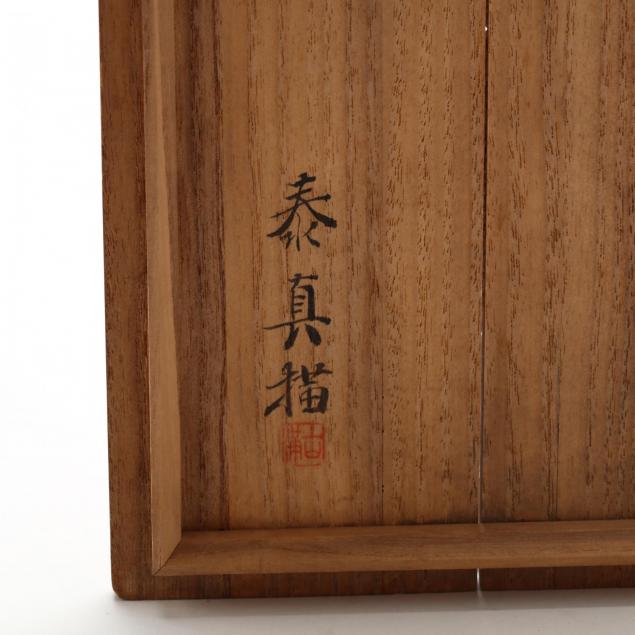 泰真描